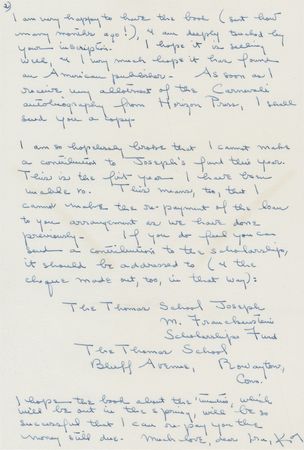 2)
I am very happy to have the book (sent how
many months ago!), & am deeply touched by
your inscription. I hope it is selling
well, & I very much hope it has found
an American publisher. As soon as I
receive my allotment of the Carnevali
autobiography from Horizon Press, I shall
send you a copy.
I am so hopelessly broke that I cannot make
a contribution to Joseph's fund this year.
This is the first year I have been
unable to. This means, too, that I
cannot make the re-payment of the loan
to you arrangement as we have done
previously. If you do feel you can
send a contribution to the scholarship,
it should be addressed to (& the
cheque made out, too, in that way):
The Thomas School Joseph
M. Franckenstein
Scholarship Fund
The Thomas School
Bluff Avenue, Rowayton,
Conn.
I hope the book about the 'twenties, which
will be out in the spring, will be so
successful that I can re-pay you the
money still due. Much love, dear